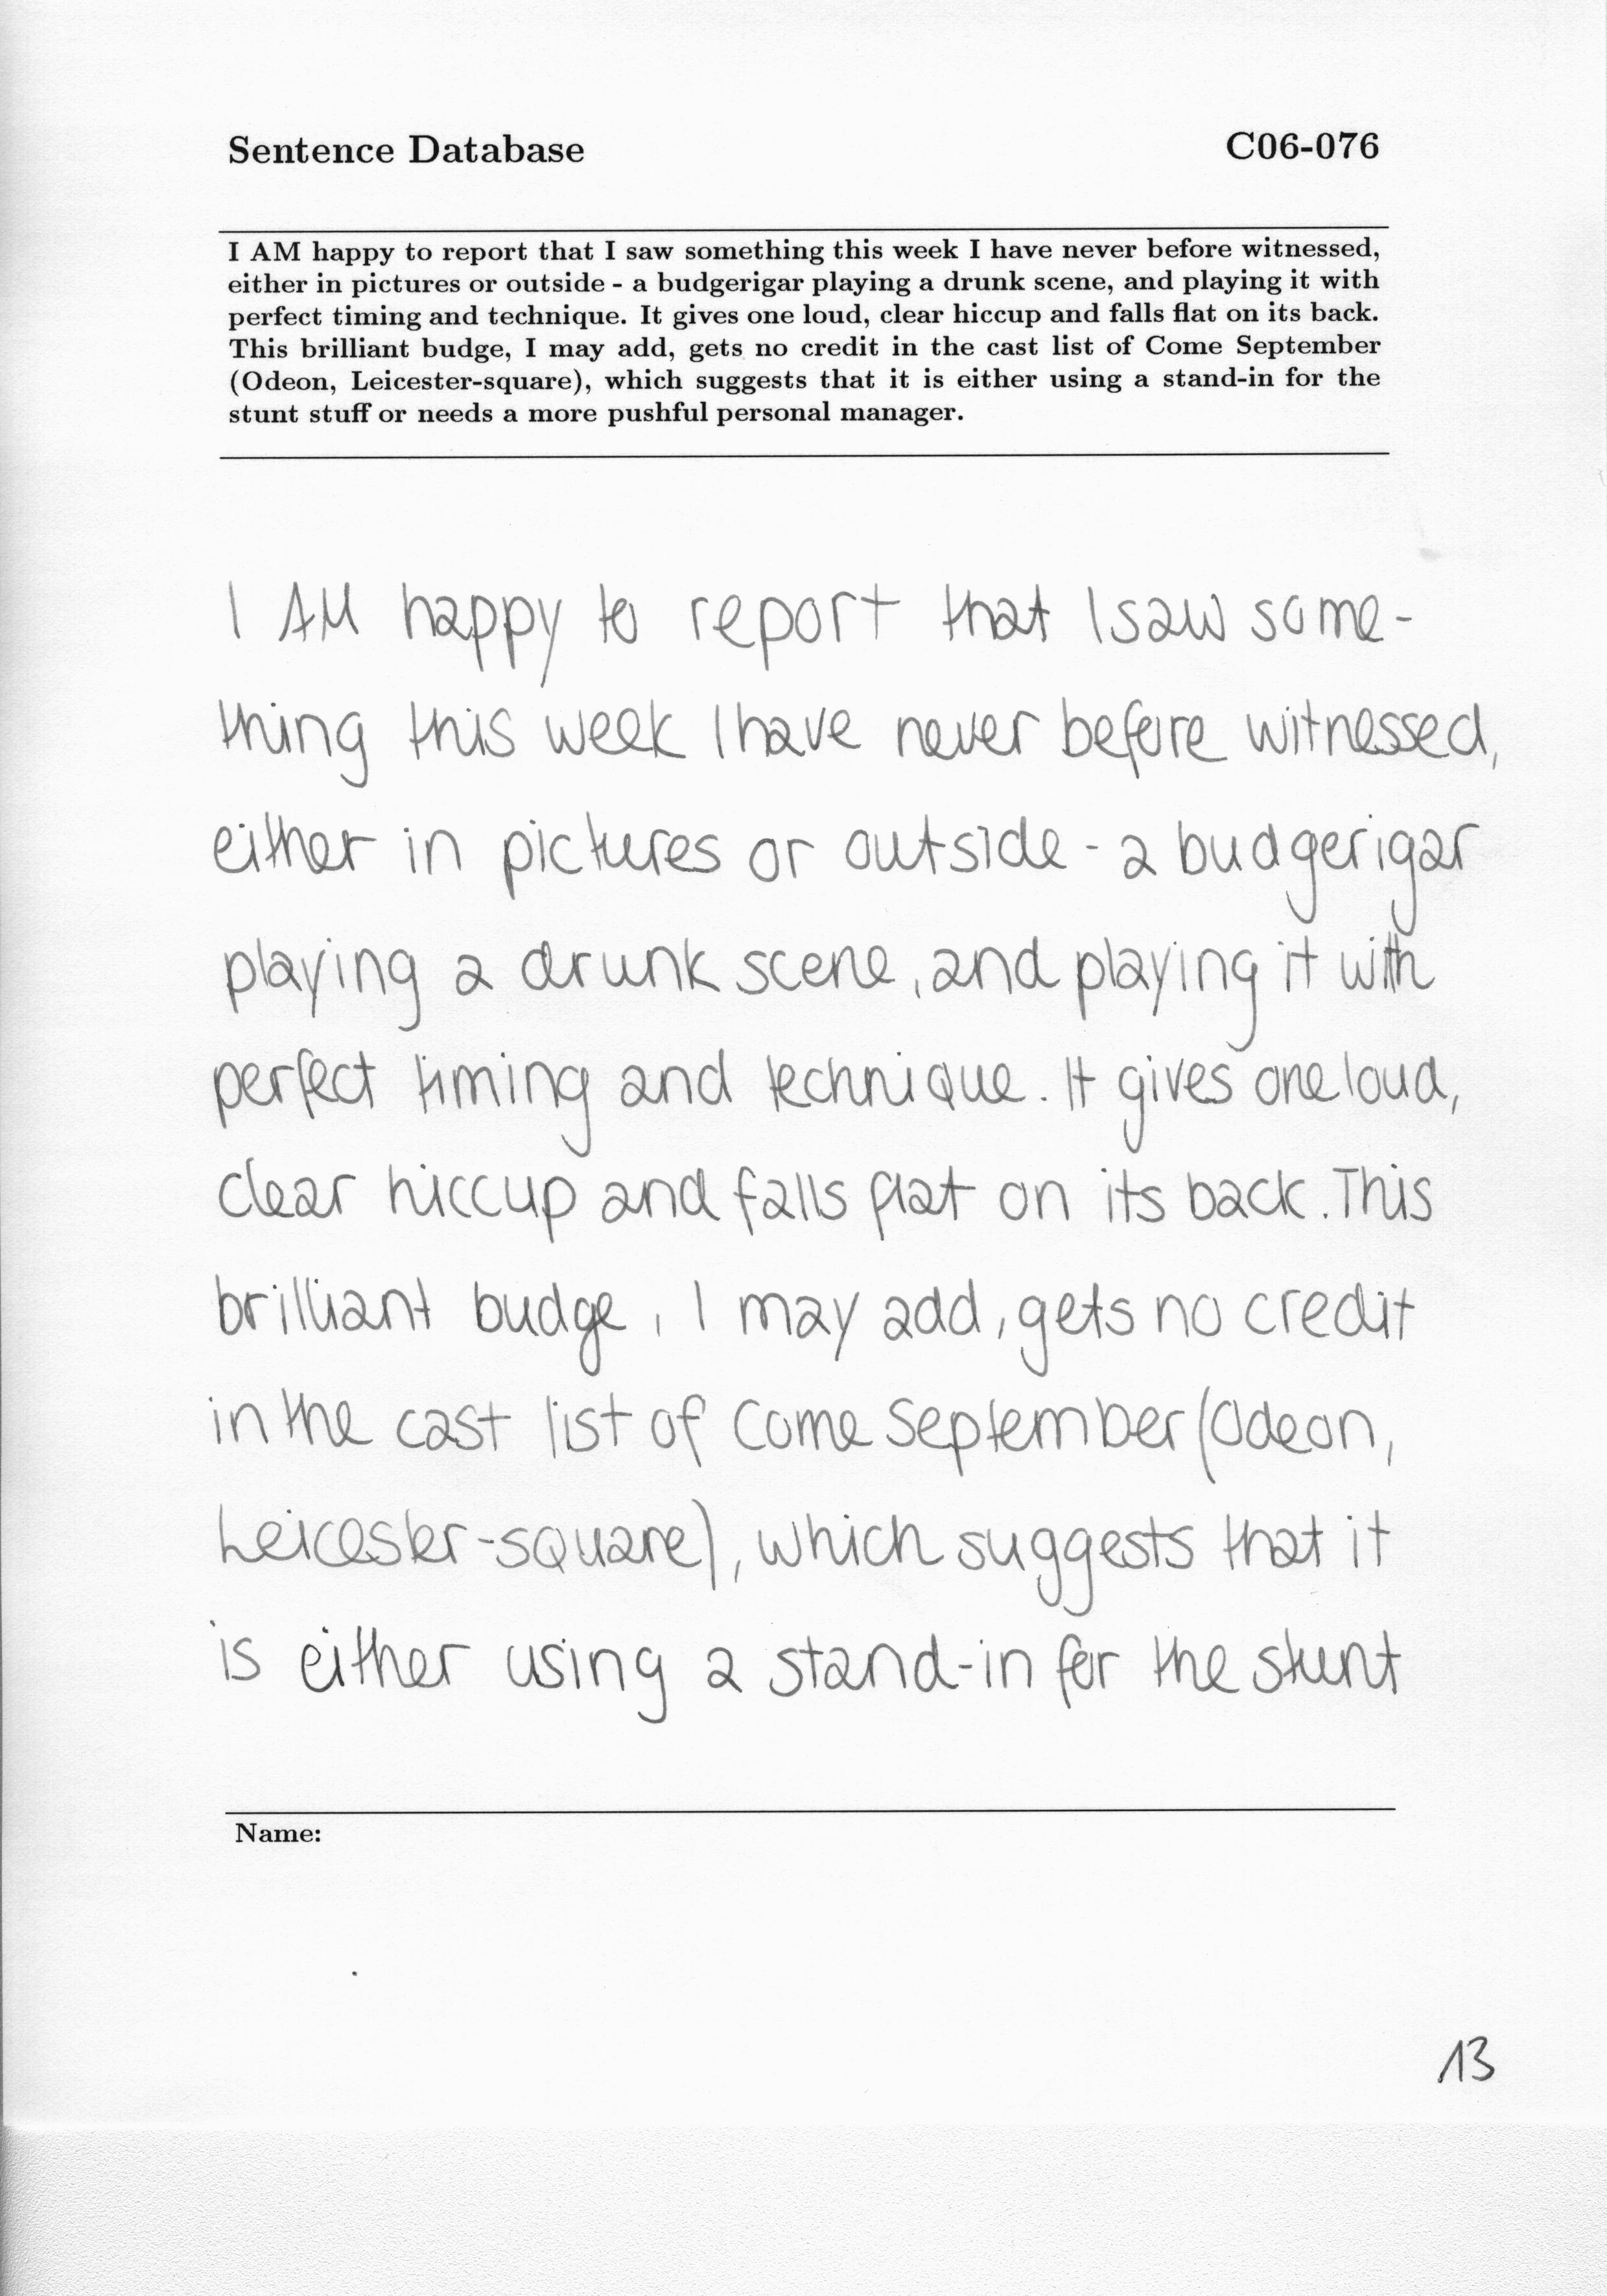 Sentence Database C06-076
I AM happy to report that I saw something this week I have never before witnessed,
either in pictures or outside - a budgerigar playing a drunk scene, and playing it with
perfect timing and technique. It gives one loud, clear hiccup and falls flat on its back.
This brilliant budge, I may add, gets no credit in the cast list of Come September
(Odeon, Leicester-square), which suggests that it is either using a stand-in for the
stunt stuff or needs a more pushful personal manager.
I AM happy to report that I saw some-
thing this week I have never before witnessed,
either in pictures or outside - a budgerigar
playing a drunk scene, and playing it with
perfect timing and technique. It gives one loud,
clear hiccup and falls flat on its back. This
brilliant budge, I may add, gets no credit
in the cast list of Come September (Odeon,
Leicester-square), which suggests that it
is either using a stand-in for the stunt
Name:
13